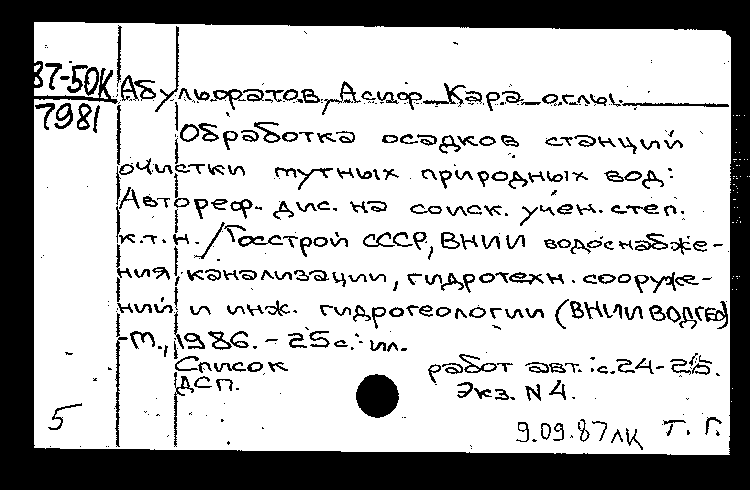 87-50К
7981
Абульфатов, Асиф Кара оглы.
Обработка осадков станций
очистки мутных природных вод:
Автореф. дис. на соиск. учен. степ.
к.т.н. / Госстрой СССР, ВНИИ водоснабже-
ния, канализации, гидротехн. сооруже-
ний и инж. гидрогеологии (ВНИИ ВОДГЕО)
-М., 1986. - 25 с.: ил.
Список работ авт.: с. 24-25.
ДСП. Экз. N 4.
5
9.09.87 ЛК Т. Г.